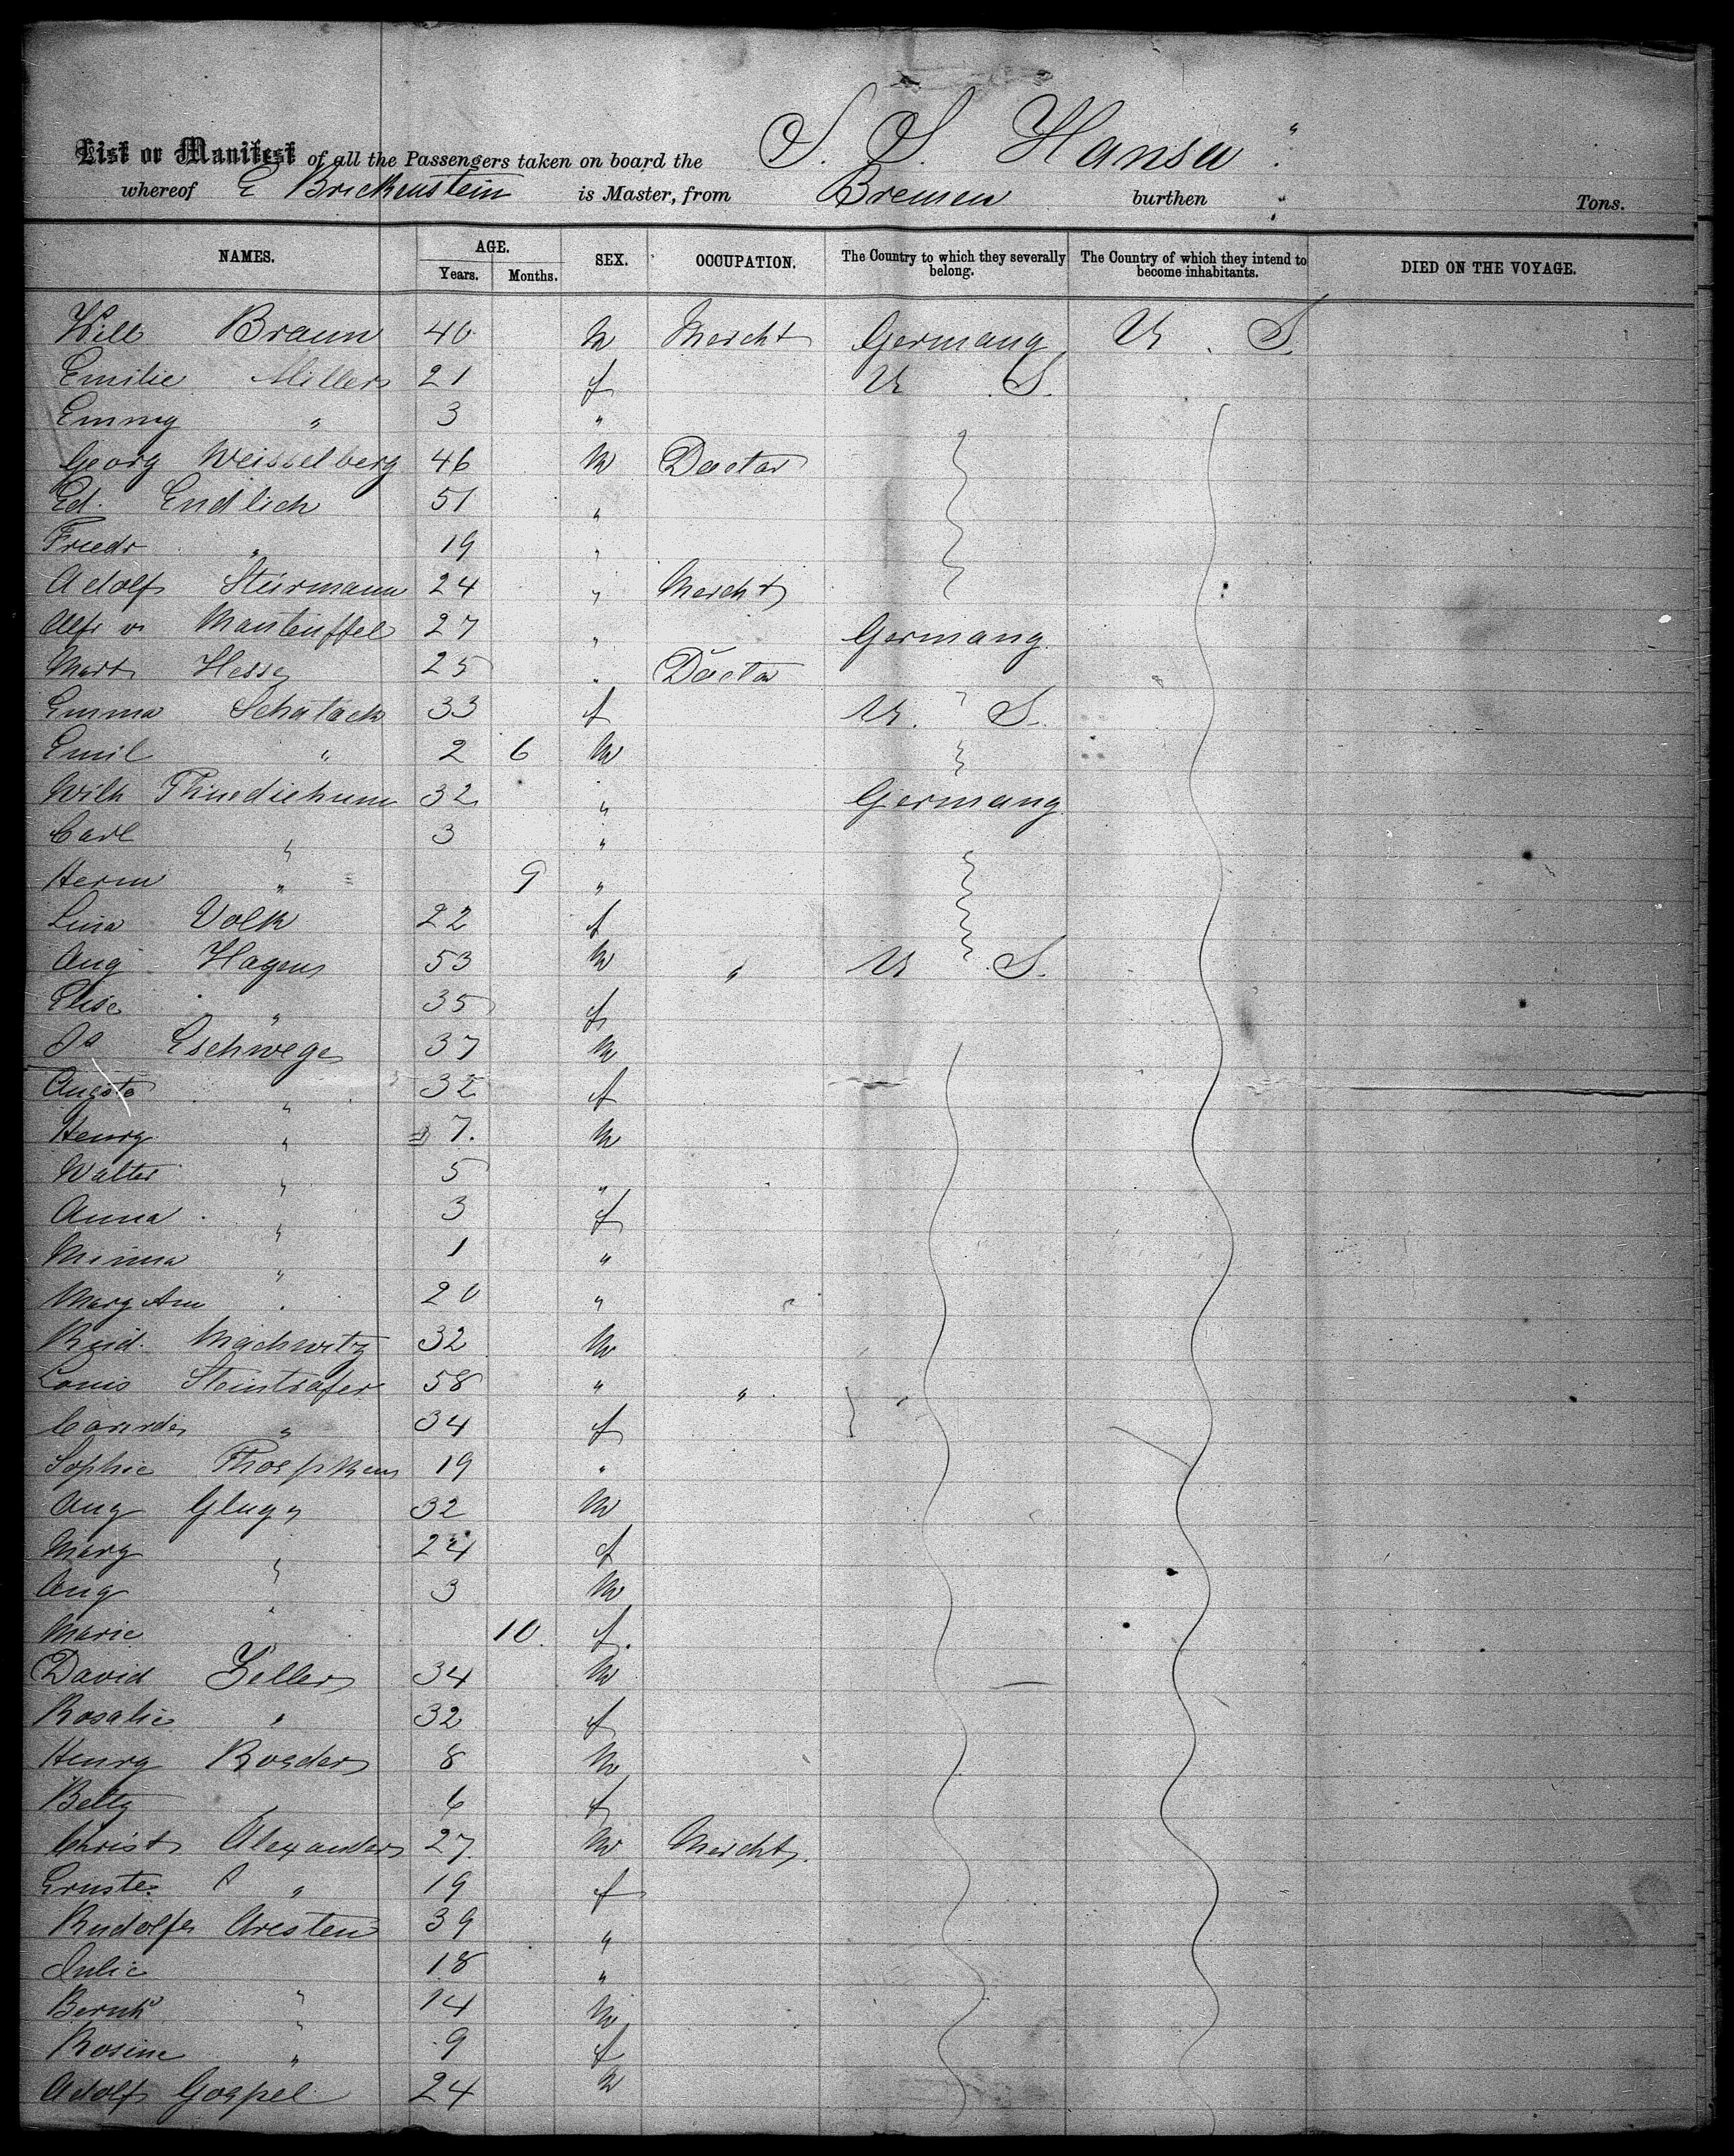 List or Manifest of all the Passengers taken on board the S. S. Hansa
whereof E Brickenstein is Master, from Bremen burthen Tons.
NAMES. AGE. Years. Months. SEX. OCCUPATION. The Country to which they severally belong. The Country of which they intend to become inhabitants. DIED ON THE VOYAGE.
Will Braun 40 M Mercht Germany U. S.
Emilie Miller 21 f U. S.
Emmy " 3 "
Georg Weisselberg 46 M Doctor
Ed. Endlich 51 "
Friedr " 19 "
Adolf Sturmann 24 " Mercht
Alfr v Manteuffel 27 " Germany
Mart Hesse 25 " Doctor
Emma Schalack 33 f U. S.
Emil " 2 6 M
Wilh 32 " Germany
Carl " 3 "
Herm " 9 "
Lina Volk 22 f
Aug Hagen 53 M " U. S.
Elise " 35 f
Is Eschwege 37 M
Augste " 32 f
Henry " 7. M
Walter " 5 "
Anna " 3 f
Minna " 1 "
Mary Ann " 20 "
Rud. Machwitz 32 M
Louis 58 " "
" 34 f
Sophie 19 "
Aug 32 M
Mary " 24 f
Aug " 3 M
Marie 10 f.
David Zeller 34 M
Rosalie " 32 f
Henry 8 M
Betty " 6 f
Christ Alexander 27 M Mercht.
Ernste " 19 f
Rudolfe Aresten 39 "
Julie 18 "
Bernhd " 14 M
Rosine " 9 f
Adolf Gospel 24 M